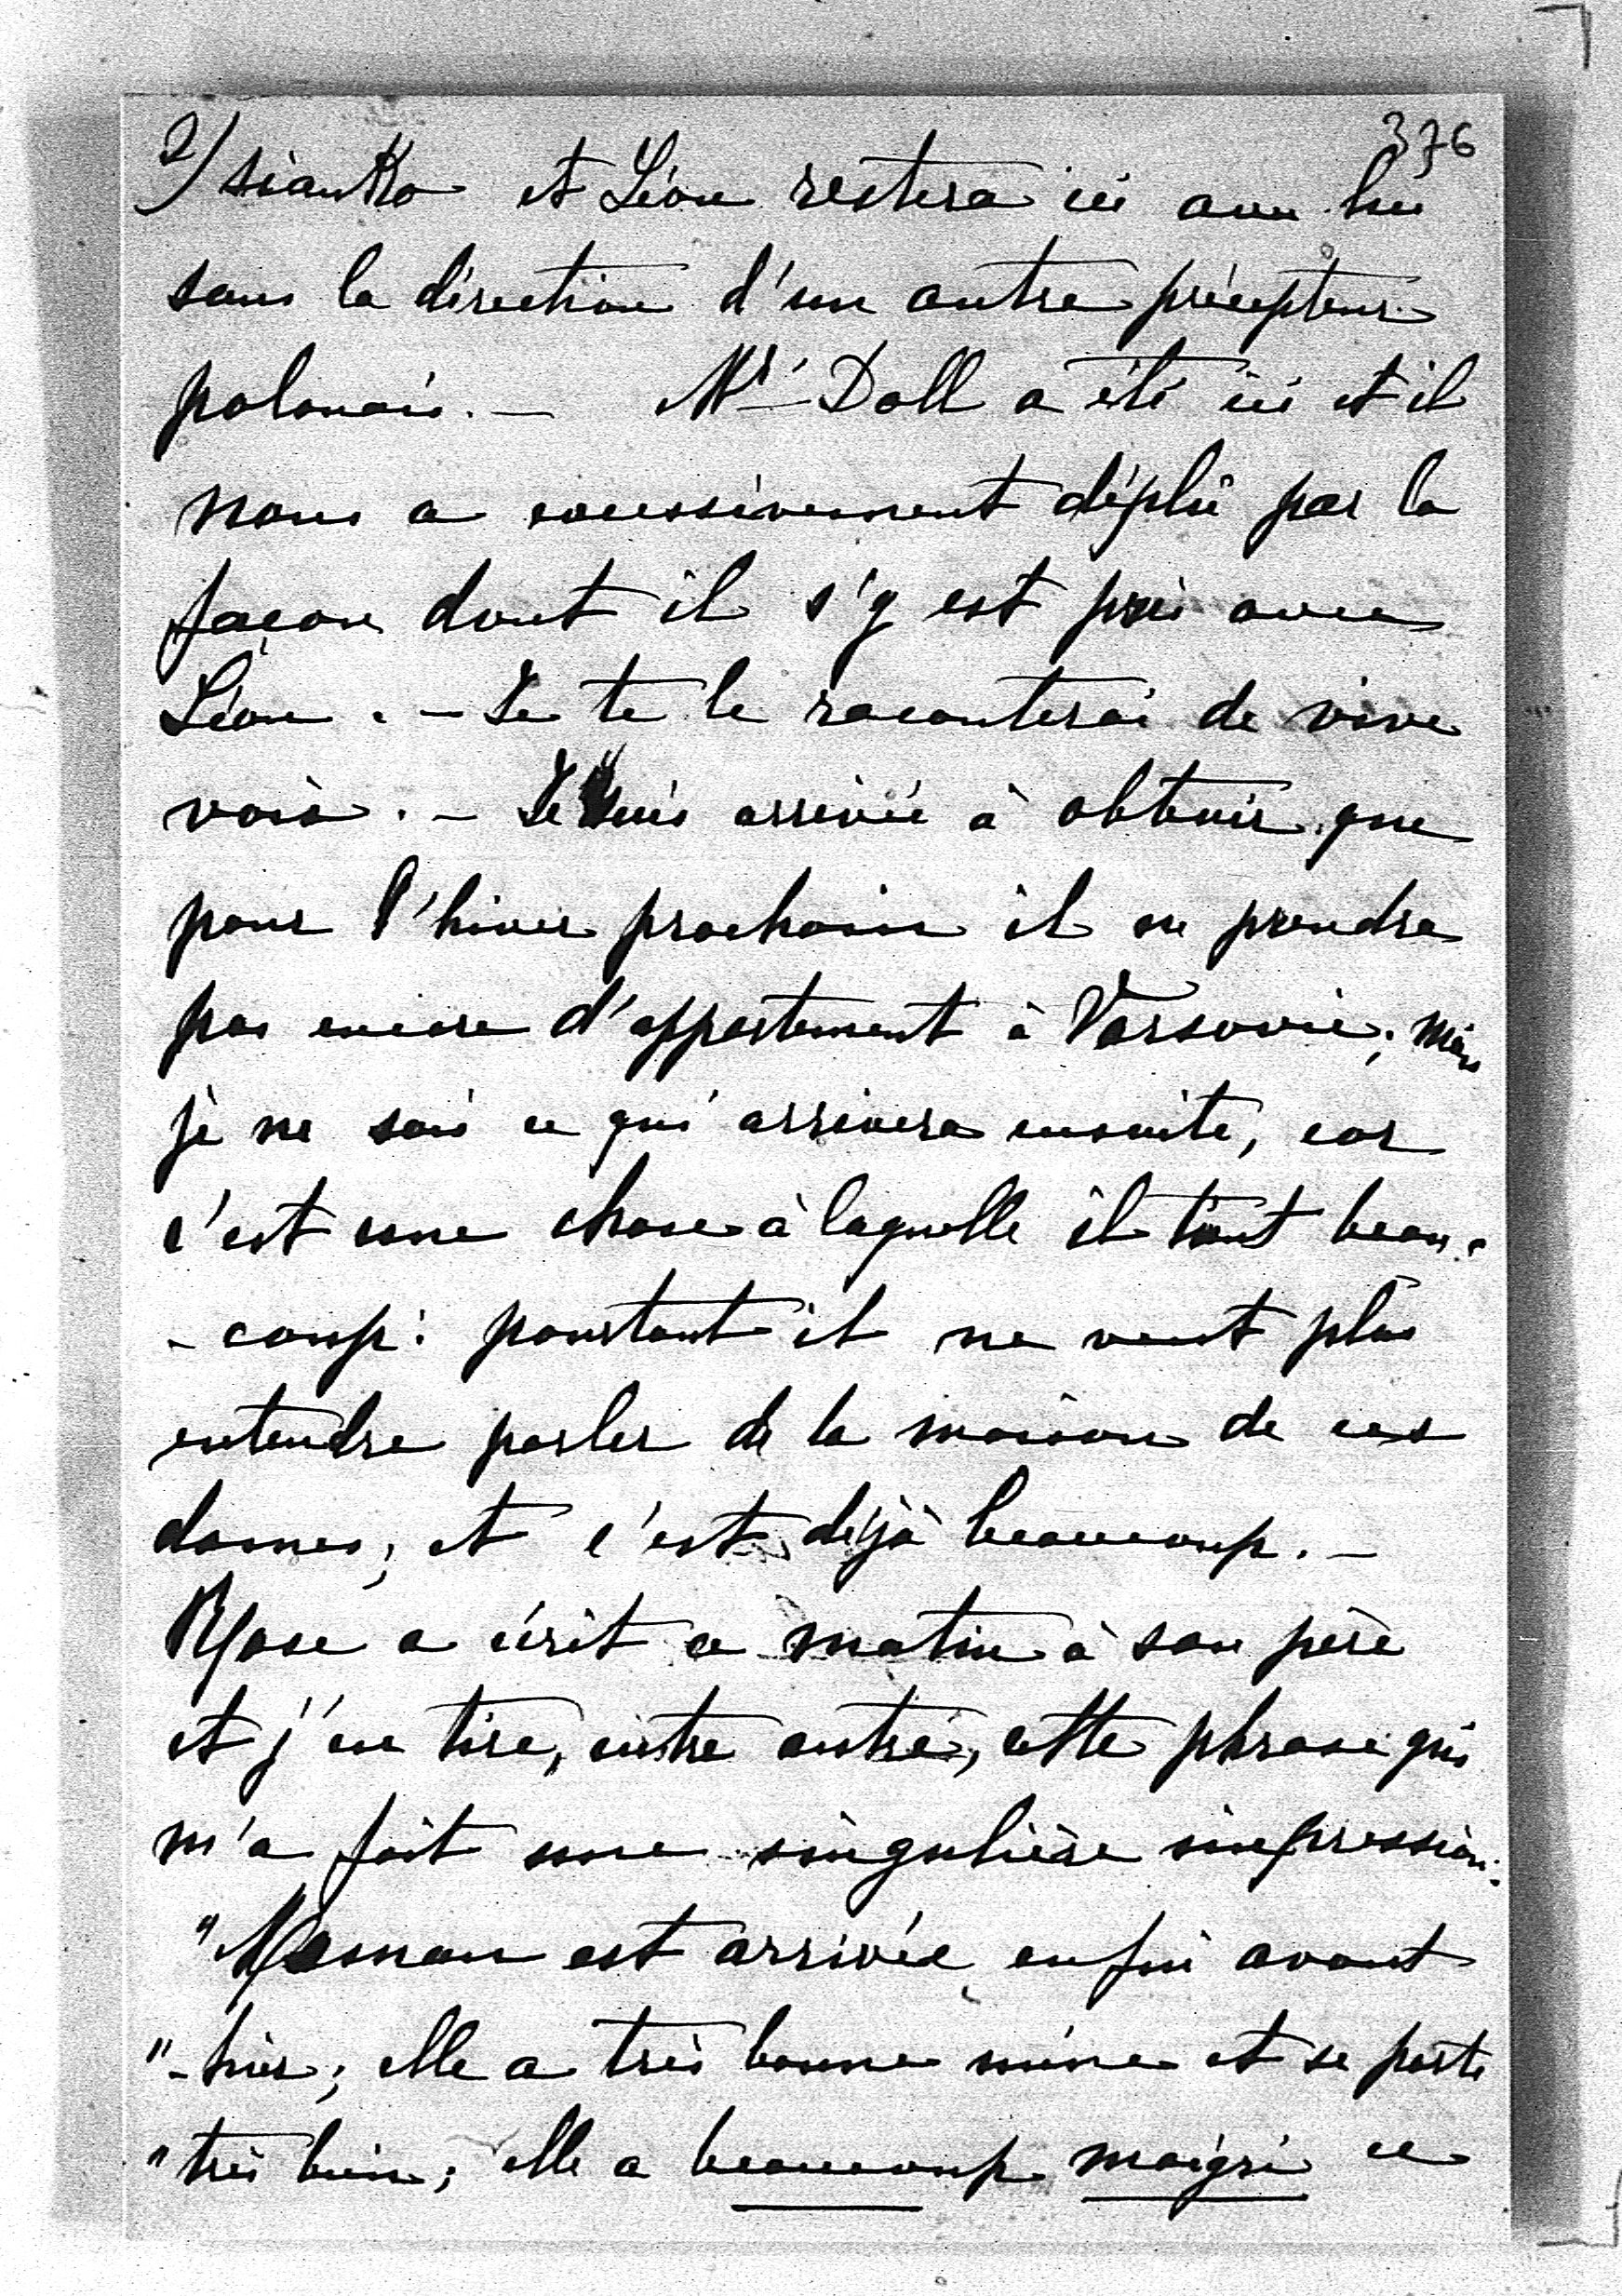 376
2/ sianko et Léon restera ici avec lui
sous la direction d'un autre précepteur
polonais. — Mr Doll a été ici et il
nous a excessivement déplû par la
façon dont il s'y est pris avec
Léon. — Je te le raconterai de vive
voix. — Je suis arrivée à obtenir que
pour l'hiver prochain il ne prendra
pas encore d'appartement à Varsovie; mais
je ne sais ce qui arrivera ensuite, car
c'est une chose à laquelle il tient beau-
-coup: pourtant il ne veut plus
entendre parler de la maison de ces
dames; et c'est déjà beaucoup. —
Rose a écrit ce matin à son père
et j'en tire, entre autre, cette phrase qui
m'a fait une singulière impression:
"Maman est arrivée enfin avant
"-hier; elle a très bonne mine et se porte
"très bien; elle a beaucoup maigri ce